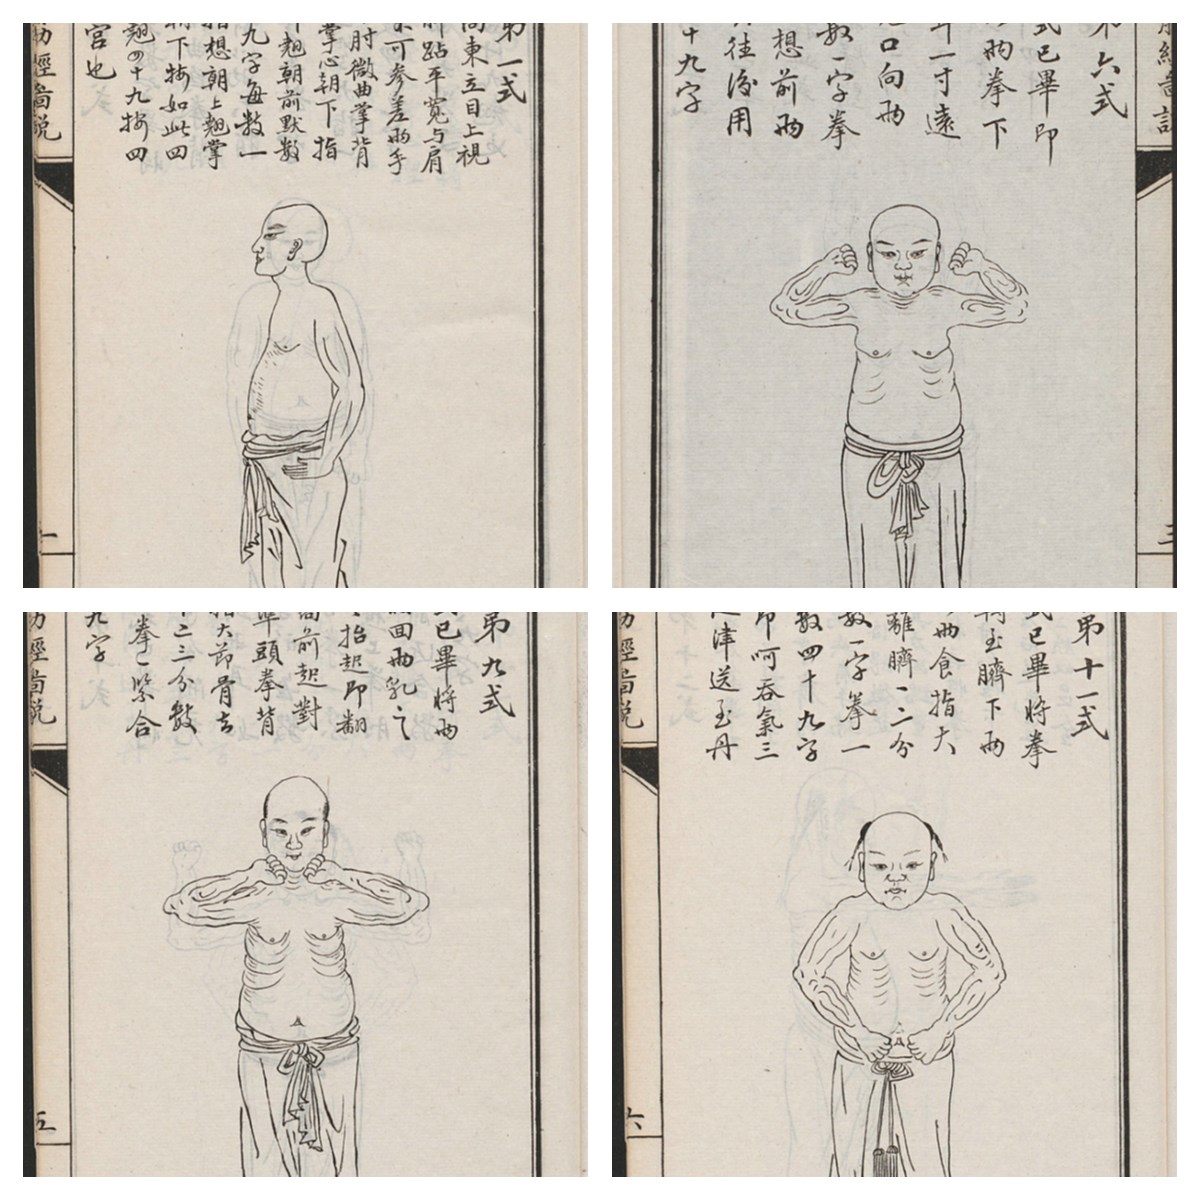 第一式
向東立目上視
跕平寬与肩
不可参差兩手
肘微曲掌背
掌心朝下指
翹朝前默数
九字每数一
指想朝上翹掌
朝下按如此四
翹四十九按四
宮也
筋經啚説
第六式
式已畢即
兩拳下
一寸遠
口向兩
数一字拳
想前兩
往後用
十九字
筋經啚説
三
第九式
式已畢将兩
面兩乳之
抬起即翻
面前起對
準頭拳背
指大節骨去
二三分数
拳一緊合
九字
筋經啚説
五
第十一式
式已畢将拳
玉臍下兩
兩食指大
離臍一二分
数一字拳一
数四十九字
即呵吞氣三
津送至丹
筋經啚説
六